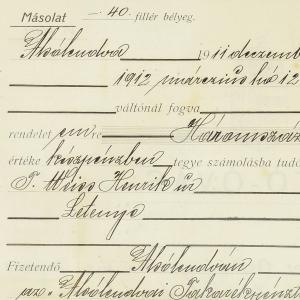 Másolat — 40. fillér bélyeg.
Alsólendva 1911 deczemb
1912 márczius hó 12
váltónál fogva
rendelet em re Háromszáz
értéke készpénzben tegye számolásba tudo
T. Weiss Henrik úr
Letenye
Fizetendő Alsólendván
az „Alsólendvai Takarékpénzt